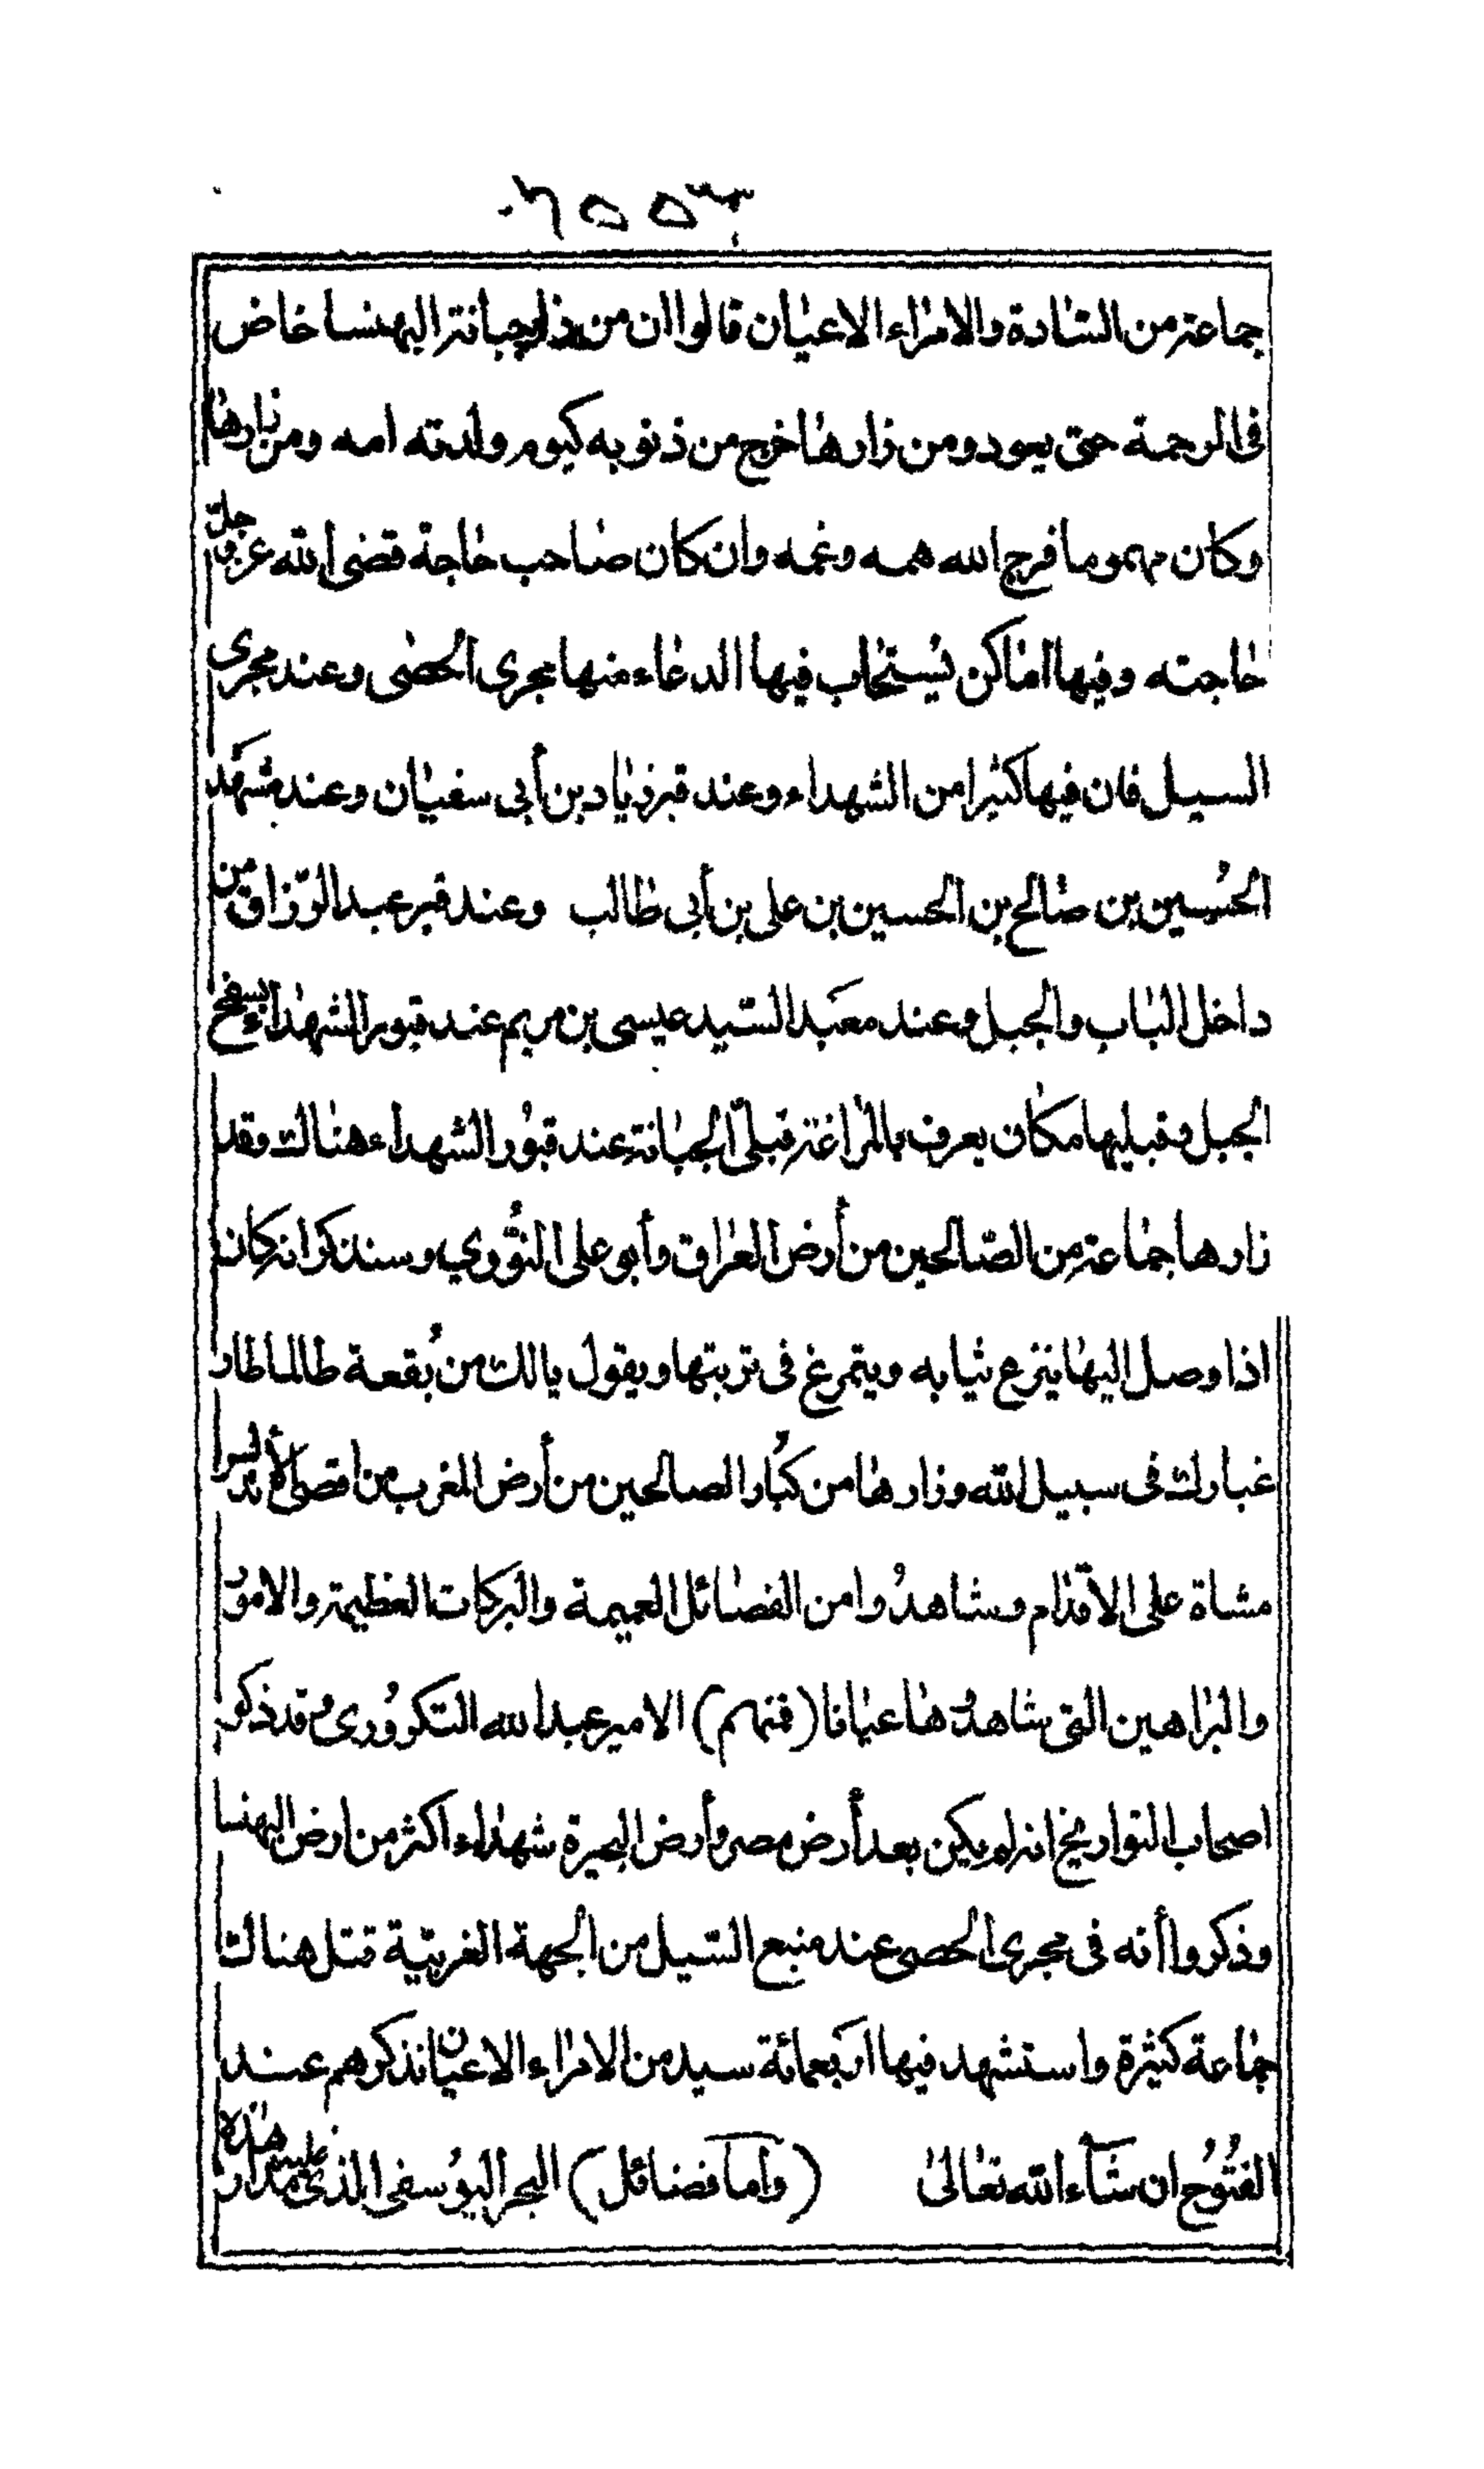 جماعة من السادة والامراء الاعيان قالوا ان من زار جبانة البهنسا خاض
فى الرحمة حتى يعود ومن زارها خرج من ذنوبه كيوم ولدته امه ومن زارها
وكان مهموما فرج الله همه وغمه وان كان صاحب حاجة قضى الله عز وجل
حاجته وفيها اماكن يستجاب فيها الدعاء منها مجرى الحصى وعند مجرى
السيل فان فيها كثيرا من الشهداء وعند قبر زياد بن أبى سفيان وعند مشهد
الحسين بن صالح بن الحسين بن على بن أبى طالب وعند قبر عبد الرزاق من
داخل الباب والجبل وعند معبد السيد عيسى بن مريم عند قبور الشهداء بسفح
الجبل وقبليها مكان يعرف بالمراغة قبلى الجبانة عند قبور الشهداء هناك وقد
زارها جماعة من الصالحين من أرض العراق وأبو على النورى وسنذكر انه كان
اذا وصل اليها ينزع ثيابه ويتمرغ فى تربتها ويقول يا لك من بقعة طالما طار
غبارك فى سبيل الله وزارها من كبار الصالحين من أرض المغرب من اقصى الأندلس
مشاة على الاقدام وشاهدوا من الفضائل العميمة والبركات العظيمة والامور
والبراهين التى شاهدها عيانا (فمنهم) الامير عبد الله التكرورى وقد ذكر
اصحاب التواريخ انه لم يكن بعد أرض مصر وأرض البحيرة شهداء اكثر من ارض البهنسا
وذكروا أنه فى مجرى الحصى عند منبع السيل من الجهة الغربية قتل هناك
جماعة كثيرة واستشهد فيها اربعمائة سيد من الامراء الاعيان نذكرهم عند
الفتوح ان شاء الله تعالى (واما فضائل) البحر اليوسفى الذى عليه مدار هذه